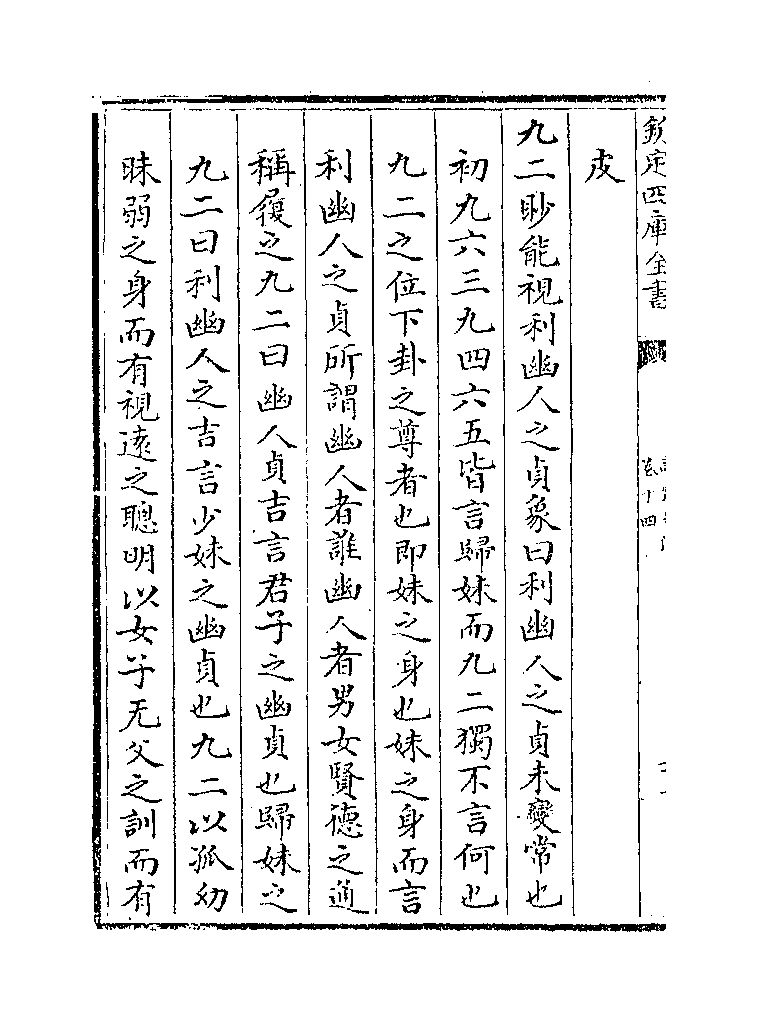 欽定四庫全書
卷十四
皮
九二眇能視利幽人之貞象曰利幽人之貞未變常也
初九六三九四六五皆言歸妹而九二獨不言何也
九二之位下卦之尊者也即妹之身也妹之身而言
利幽人之貞所謂幽人者誰幽人者男女賢德之通
稱履之九二曰幽人貞吉言君子之幽貞也歸妹之
九二曰利幽人之吉言少妹之幽貞也九二以孤幼
昧弱之身而有視遠之聰明以女子无父之訓而有